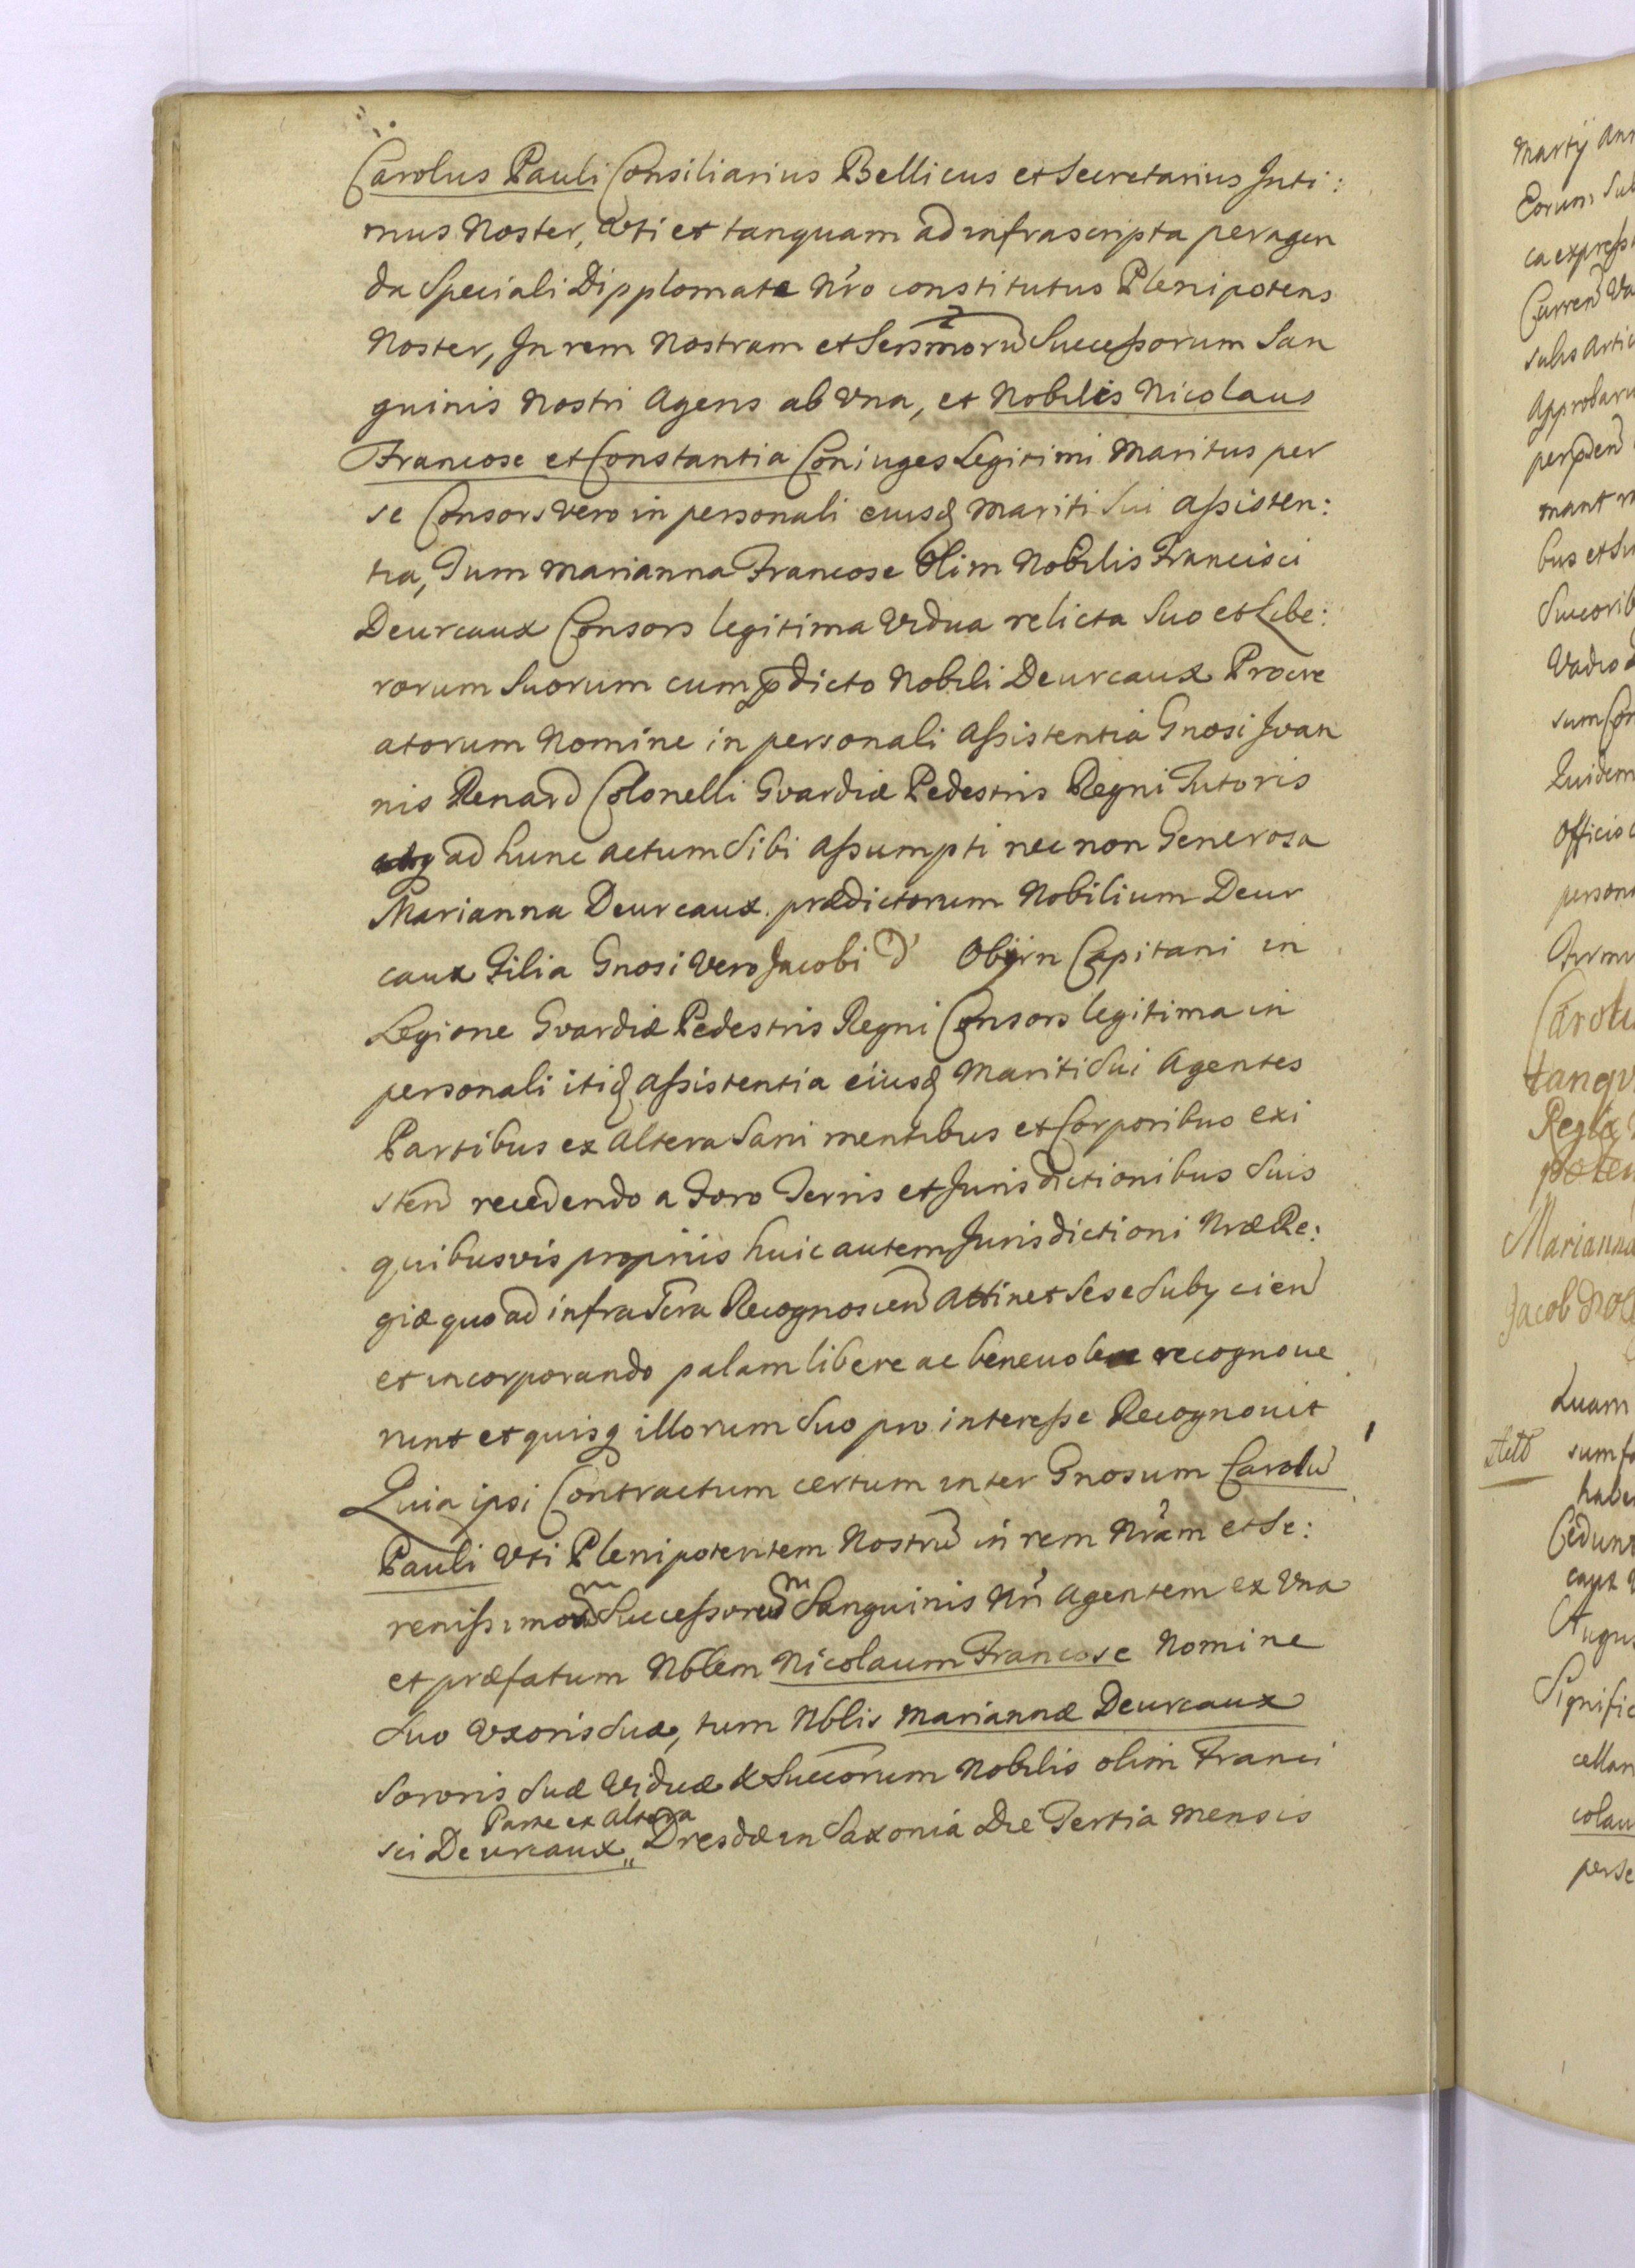 Carolus Pauli Consiliarius Bellicus et Secretarius Inti:
mus Noster, uti et tanquam ad infrascripta peragen
da Speciali Dipplomate Nro constitutus Plenipotens
Noster, In rem Nostram et Sersmorũ Successorum San
guinis Nostri Agens ab Vna, et Nobilis Nicolaus
Francose et Constantia Coniuges Legitimi Maritus per
se Consors vero in personali eiusq mariti Sui assisten:
tia, Tum Marianna Francose Olim Nobilis Francisci
Deurcaux Consors legitima Vidua relicta Suo et Libe:
rorum Suorum cum pdicto Nobili Deurcaux Procre
atorum Nomine in personali Assistentia Gnosi Ioan
nis Renard Colonelli Gvardiæ Pedestris Regni Tutoris
ad hunc actum Sibi Assumpti nec non Generosa
Marianna Deurcaux prædictorum Nobilium Deur
caux Filia Gnosi Vero Jacobi D' Obyrn Capitani in
Legione Gvardiæ Pedestris Regni Consors legitima in
personali itiq assistentia eiusq Mariti Sui Agentes
Partibus ex Altera Sani mentibus et Corporibus exi
sten recedendo a Foro Terris et Jurisdictionibus Suis
quibusvis propriis huic autem Jurisdictioni Nræ Re:
giæ quo ad infra Scra Recognoscen Attinet Sese Subycien
et incorporando palam libere ac beneuole recognoue
runt et quisq illorum Suo pro interesse Recognouit
Quia ipsi Contractum certum inter Gnosum Carolũ
Pauli Vti Plenipotentem Nostrũ in rem Nram et Se:
renissimorũ Successorũ Sanguinis Nri Agentem ex Vna
et præfatum Nblem Nicolaum Francose Nomine
Suo Vxoris Suæ, tum Nblis Mariannæ Deurcaux
Sororis Suæ Viduæ & Succorum Nobilis olim Franci
Parte ex Altera
sci Deurcaux „ Dresdæ in Saxonia Die Tertia Mensis
Marty
Eorum
ca
Curren
Approbaru
mant
bus et
Vadio
sum
Quidem
Officio
person
Carolu
tanqv
Regiæ
poten
Marianna
Jacob
Quam
sum
habe
Cedunt
Augus
Signific
cellar
colau
per se